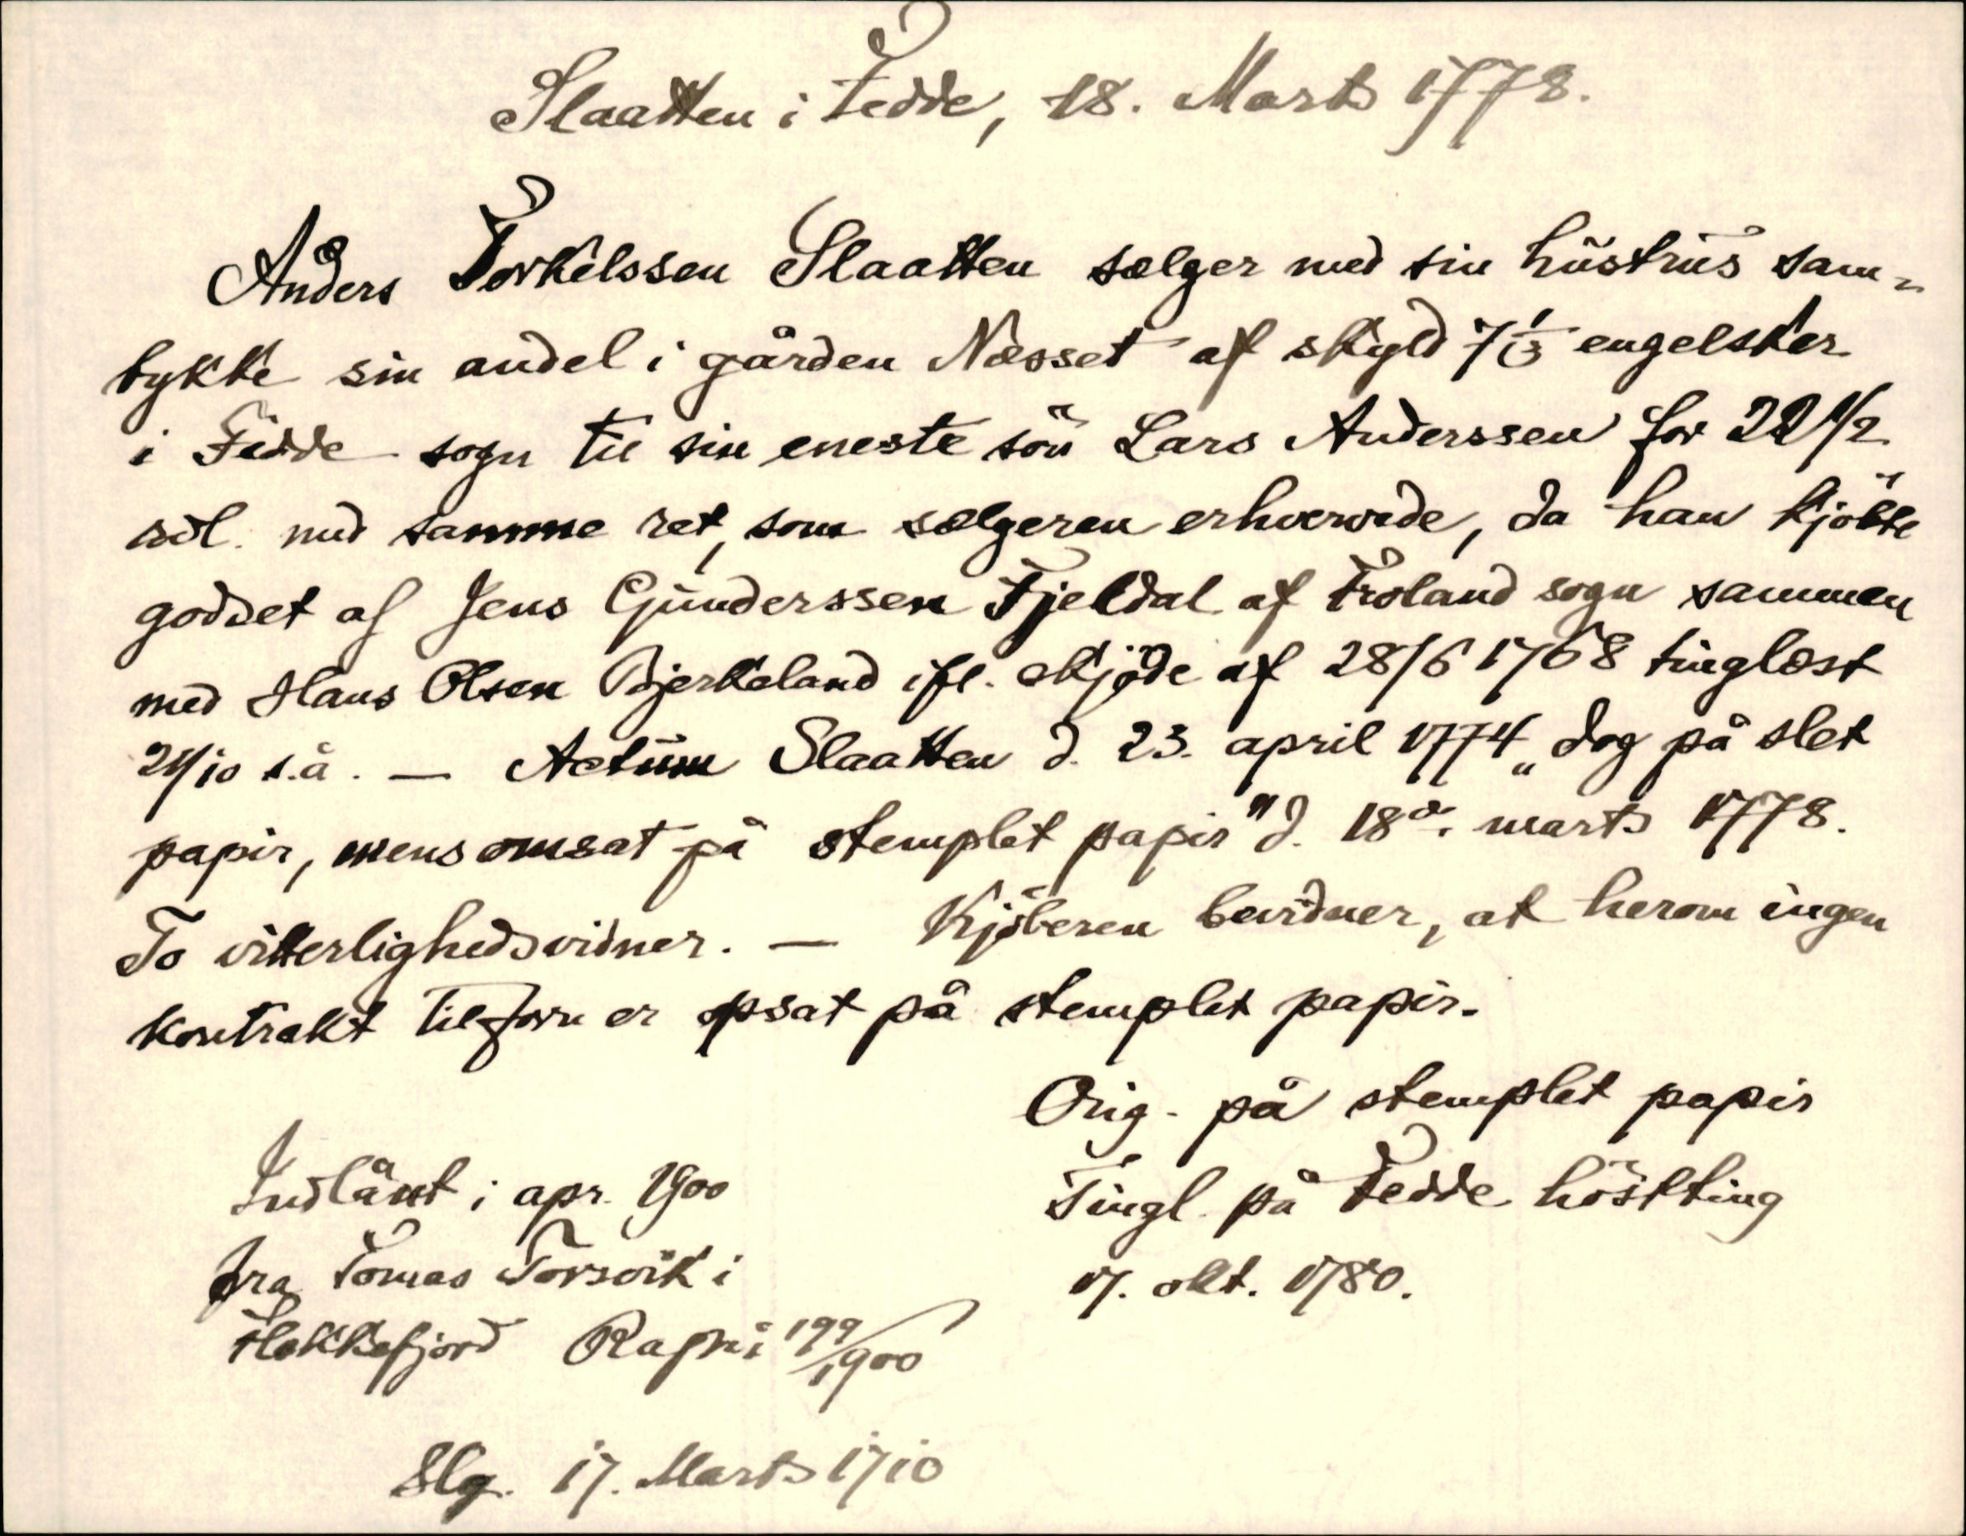 Slaatten i Fedde, 18. Marts 1778.
Anders Torkelssen Slaatten sælger med sin hüstrüs sam-
tykke sin andel i gården Næsset af skyld 7 1/3 engelsker
i Fedde sogn til sin eneste sön Lars Anderssen for 22 1/2
rdl. med samme ret, som sælgeren erhvervede, da han kjöbte
godset af Jens Gunderssen Fjeldal af Froland sogn sammen
med Hans Olsen Bjerkeland ifl. skjöde af 28/6 1768 tinglæst
24/10 s.å. — Actüm Slaatten d. 23. april 1774 „dog på slet
papir, mens omsat på stemplet papir" d. 18de. marts 1778.
To vitterlighedsvidner. — Kjöberen bevidner, at herom ingen
kontrakt tilforn er opsat på stemplet papir.
Orig. på stemplet papir
Tingl. på Fedde hösttting
17. okt. 1780.
Indlånt i apr. 1900
fra Tomas Torsvik i
Flekkefjord Rapni 199/1900
Slg. 17. Marts 1710